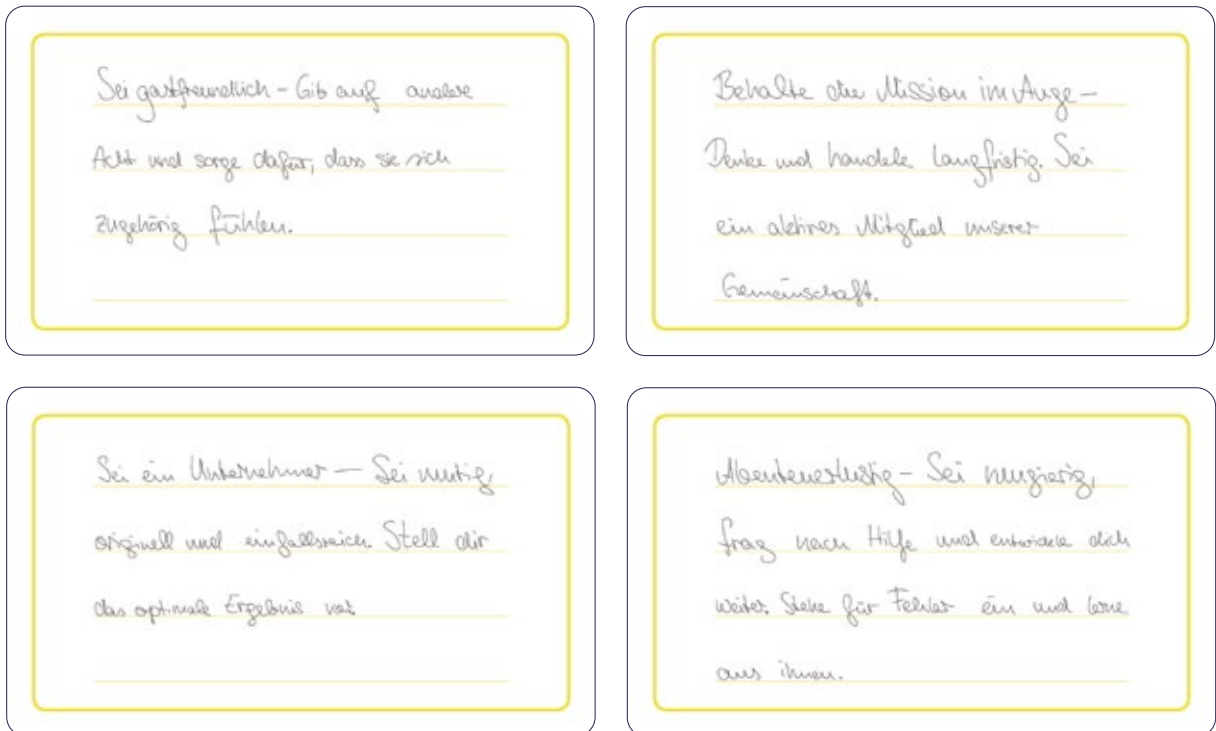 Sei gastfreundlich – Gib auf andere
Acht und sorge dafür, dass sie sich
zugehörig fühlen.
Behalte die Mission im Auge –
Denke und handele langfristig. Sei
ein aktives Mitglied unserer
Gemeinschaft.
Sei ein Unternehmer — Sei mutig,
originell und einfallsreich. Stell dir
das optimale Ergebnis vor.
Abenteuerlustig – Sei neugierig,
frag nach Hilfe und entwickle dich
weiter. Stehe für Fehler ein und lerne
aus ihnen.